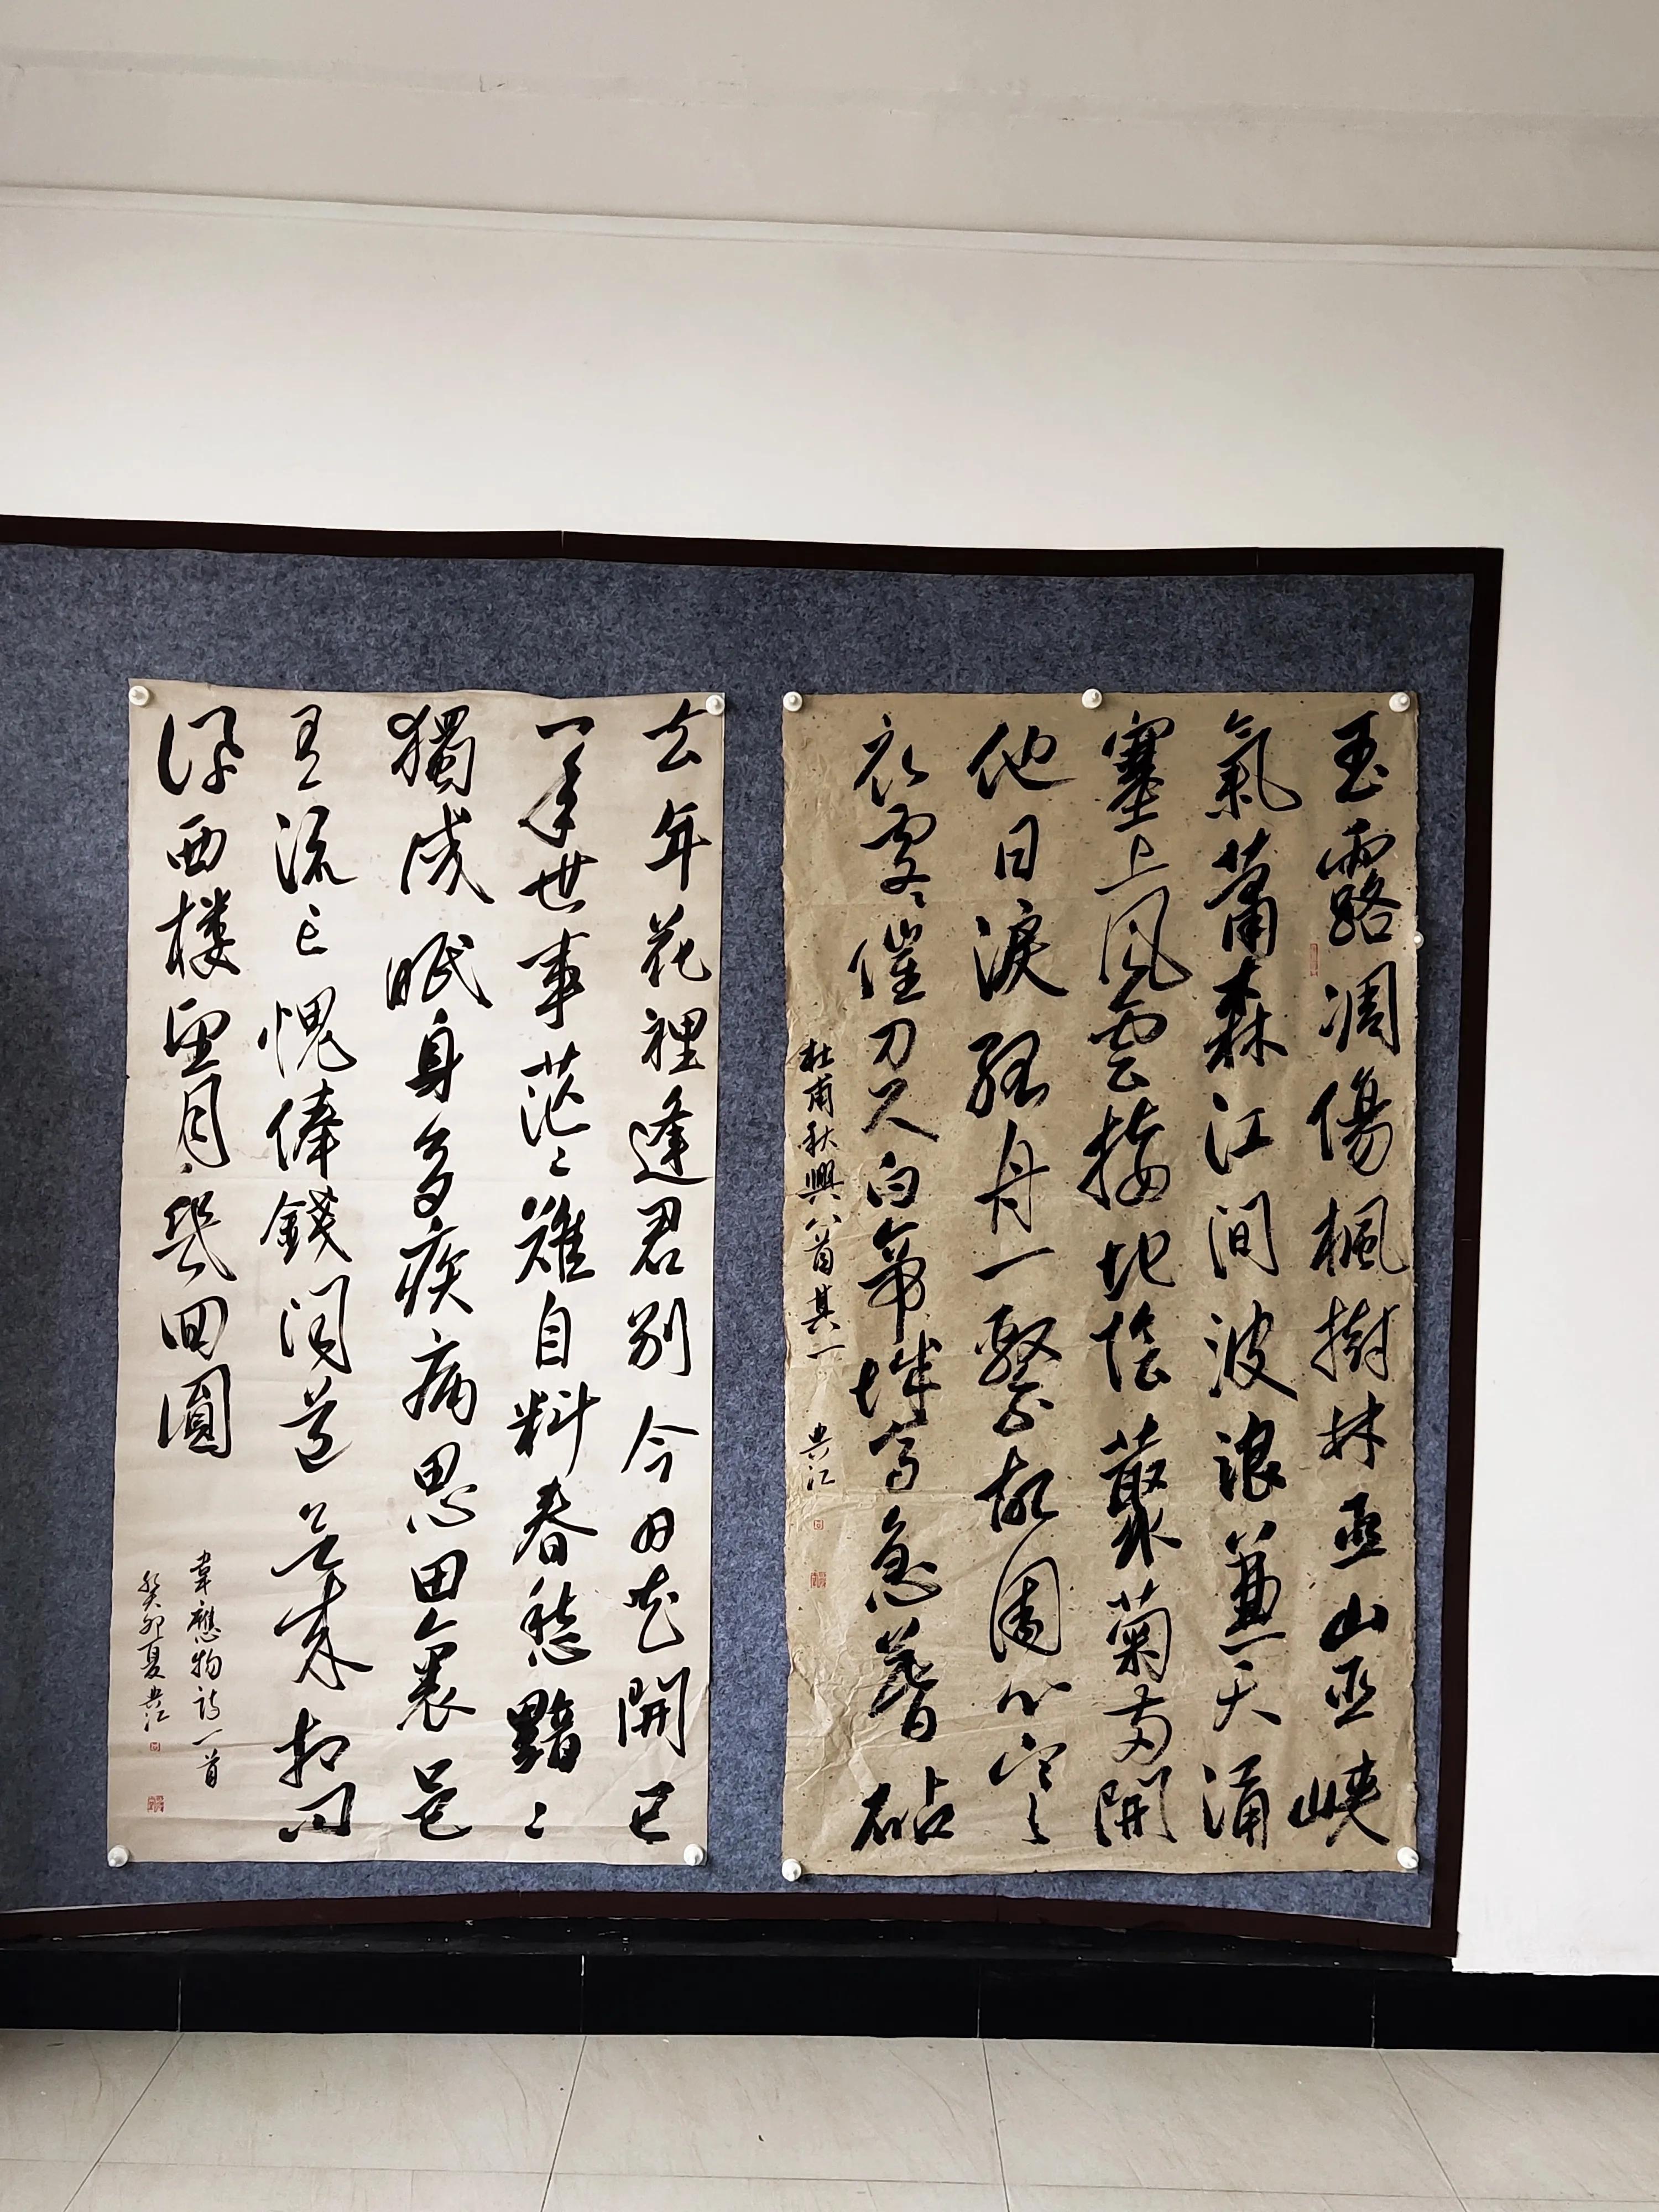 玉露凋傷楓樹林巫山巫峽
氣蕭森江間波浪兼天涌
塞上風雲接地陰叢菊兩開
他日淚孤舟一繫故園心寒
衣處々催刀尺白帝城高急暮砧
杜甫秋興八首其一 共江
去年花裡逢君別今日花開已
一年世事茫々難自料春愁黯々
獨成眠身多疾病思田裏邑
有流亡愧俸錢聞道欲來相問
訊西樓望月幾回圓
韋應物詩一首
癸卯夏共江